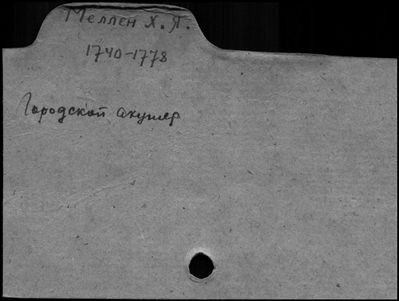 Меллен Х. Я.
1740-1778
Городской акушер